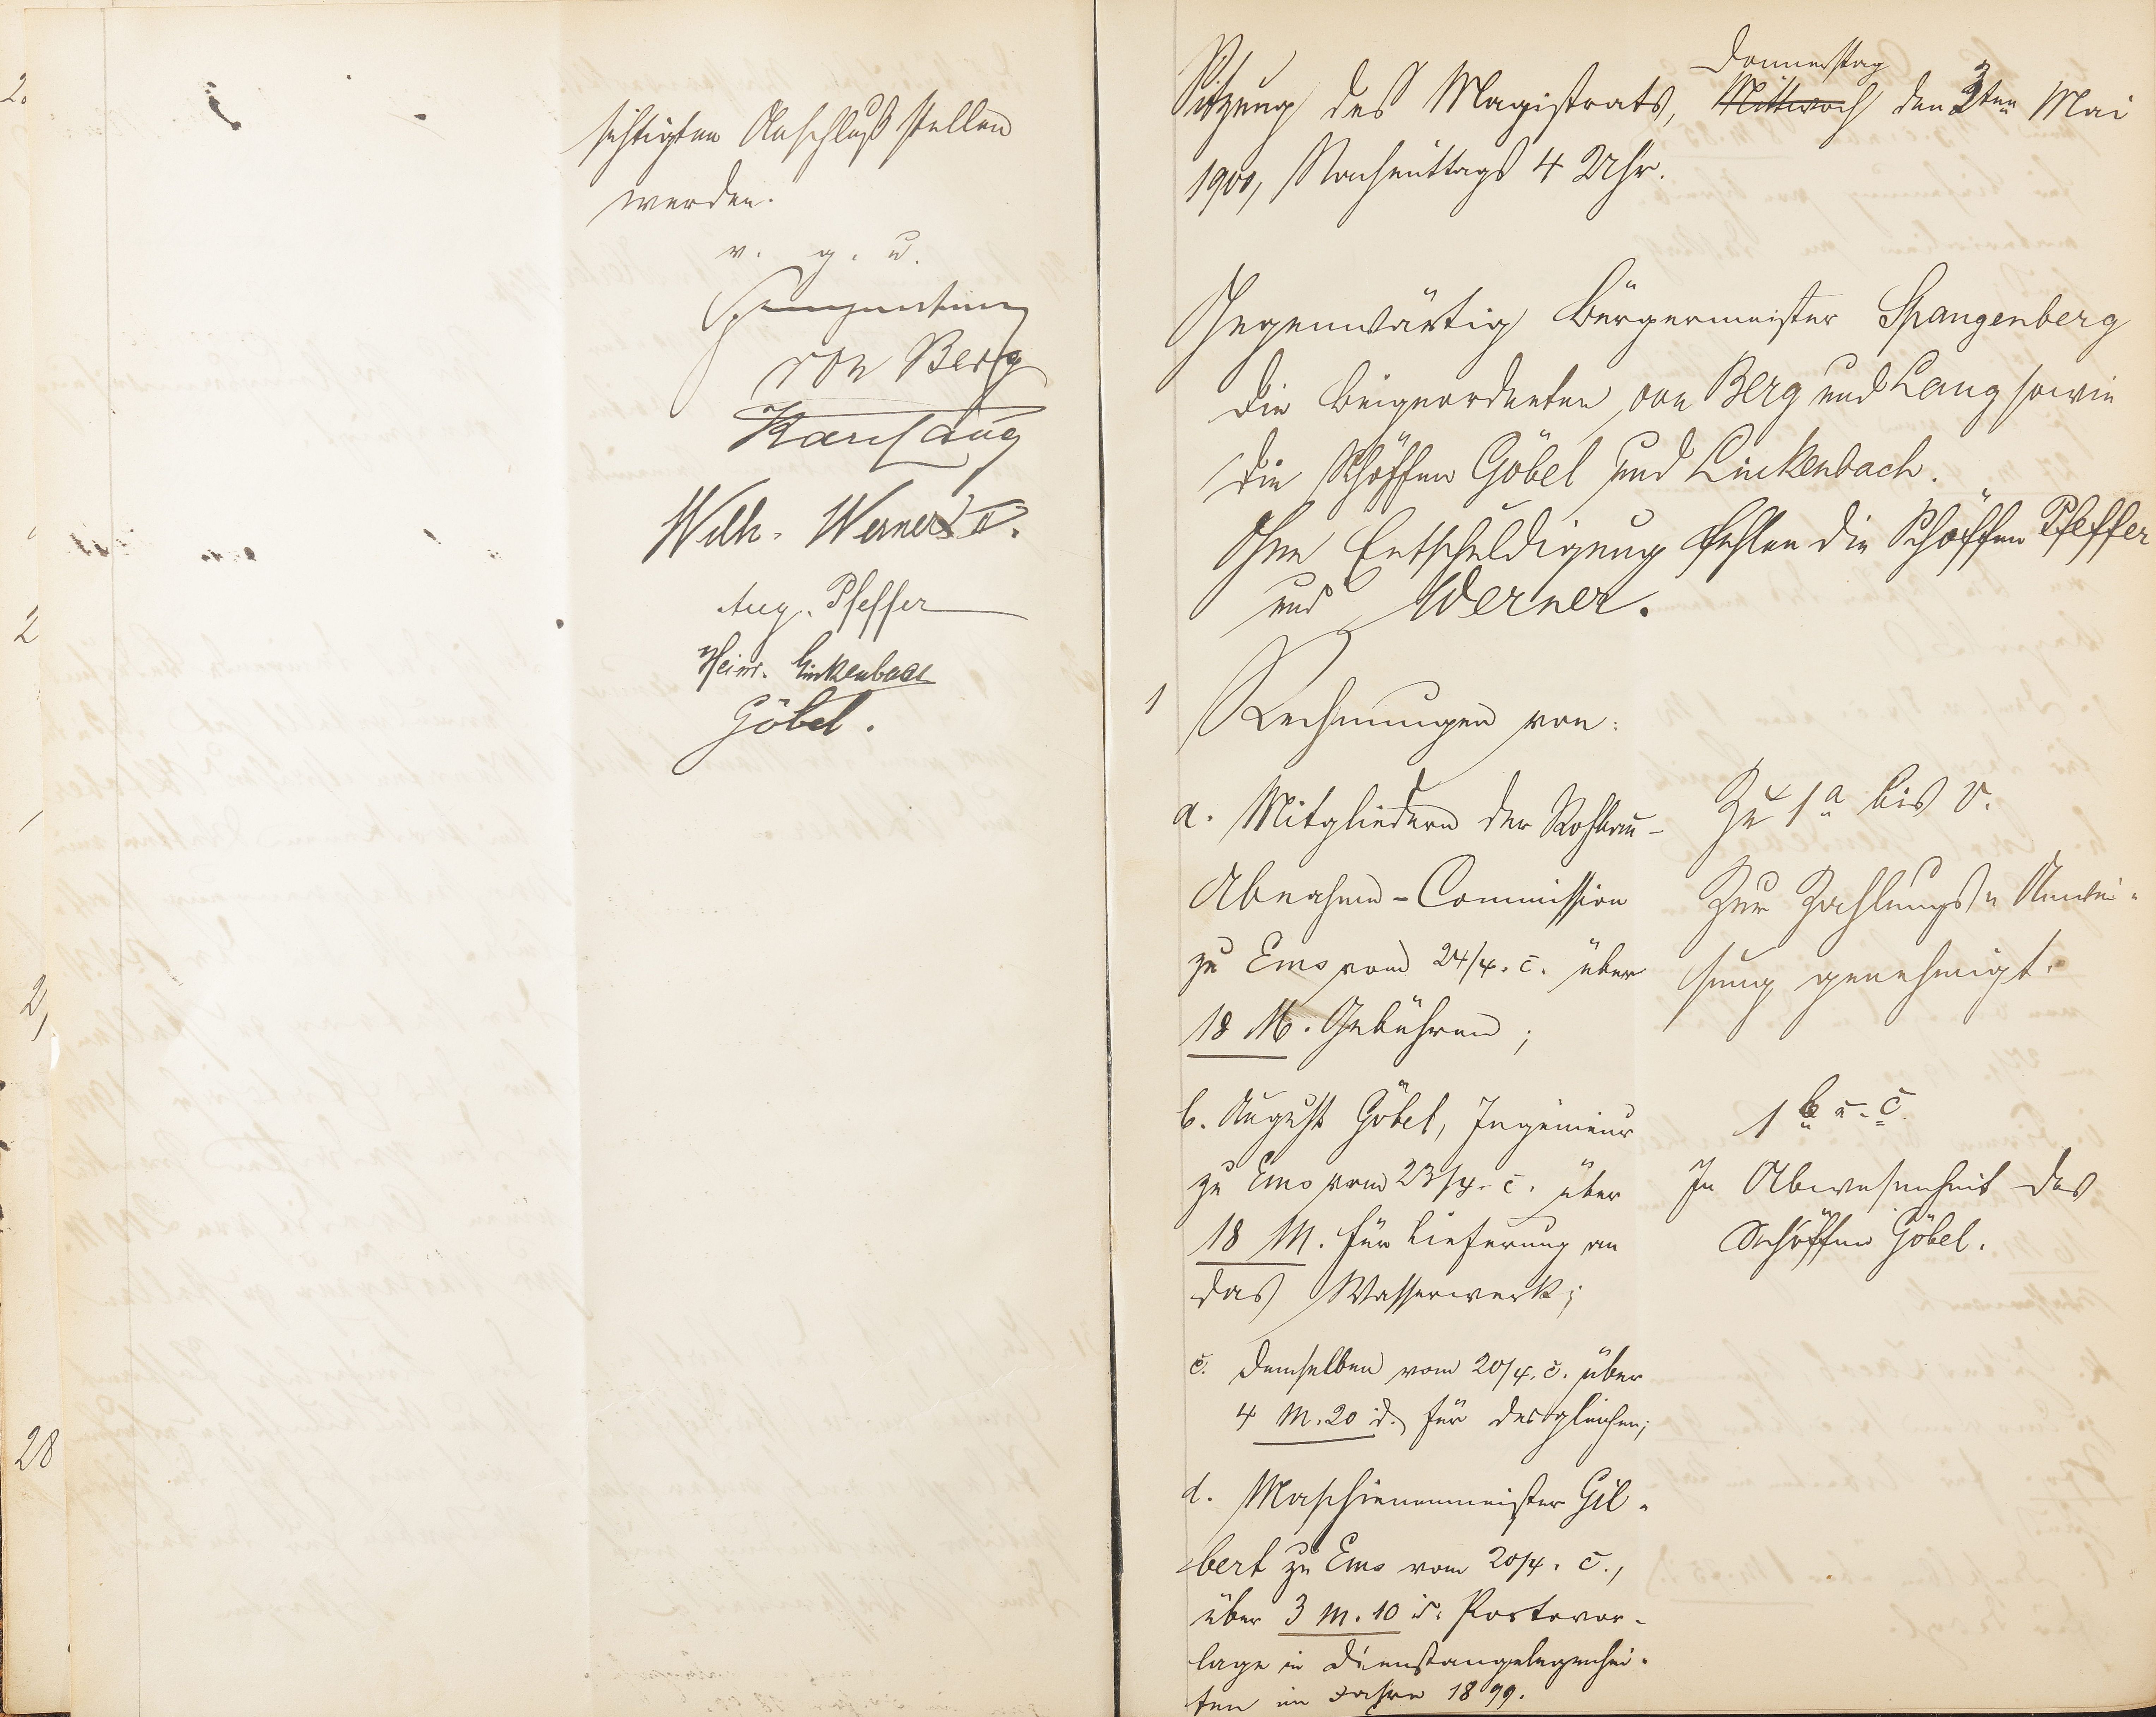 2.
2
2,
28
sichtigten Anschluß stellen
werden.
v. g. u.
Spangenberg
von Berg
Karl Lang
Wilh. Werner II.
Aug. Pfeffer
Heinr. Linkenbach
Göbel.
Donnerstag
Sitzung des Magistrats, Mittwoch den 3ten Mai
1900, Nachmittags 4 Uhr.
Gegenwärtig Bürgermeister Spangenberg
die Beigeordneten von Berg und Lang sowie
die Schöffen Göbel und Linkenbach.
Ohne Entschuldigung fehlen die Schöffen Pfeffer
und Werner.
1 Rechnungen von:
a. Mitgliedern der Rohbau-
Abnahme-Commission
zu Ems vom 24/4. c. über
18 M. Gebühren;
b. August Göbel, Ingenieur
zu Ems vom 23/4. c. über
18 M. für Lieferung an
das Wasserwerk;
c. demselben vom 20/4. c. über
4 M. 20 d. für desgleichen;
d. Maschienenmeister Gil-
bert zu Ems vom 20/4. c.,
über 3 M. 10 d. Portovor-
lage in Dienstangelegenhei-
ten im Jahre 1899.
Zu 1 a bis v.
Zur Zahlungs-Anwei-
sung genehmigt.
1 b u. c
In Abwesenheit des
Schöffen Göbel.